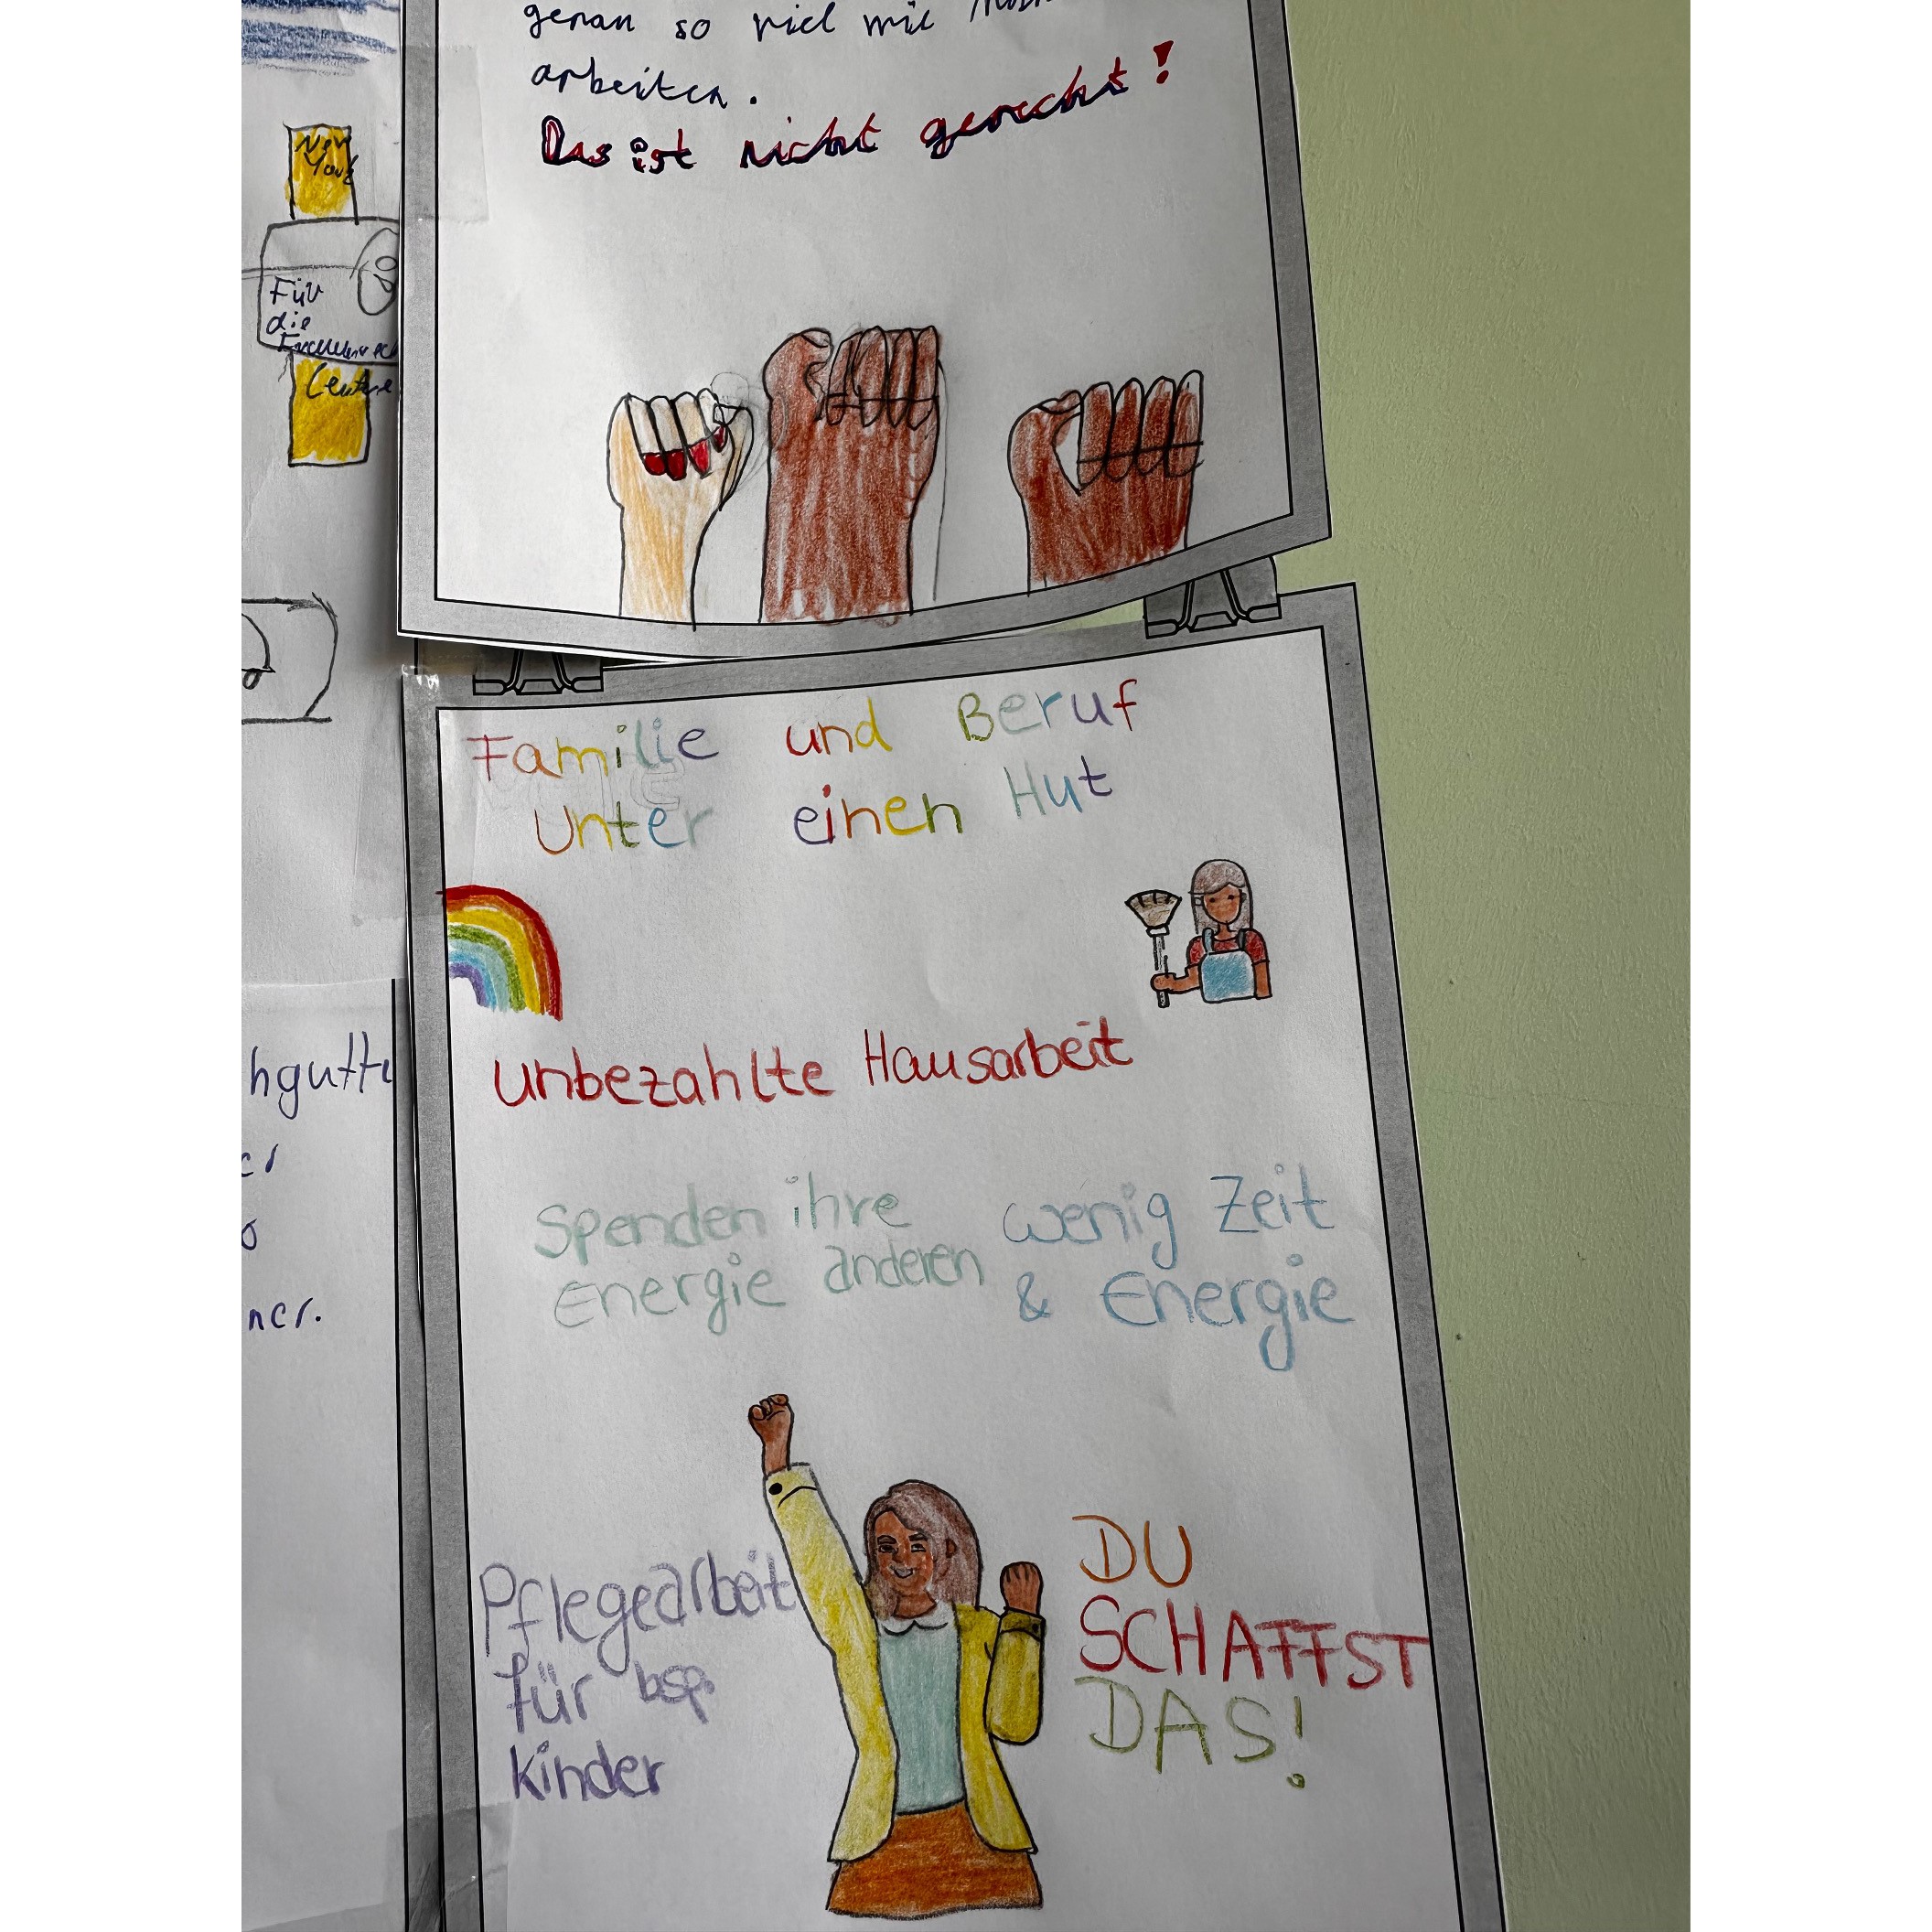 genau so viel wie
arbeiten.
Das ist nicht gerecht!
New
York
Für
die
Familie und Beruf
unter einen Hut
unbezahlte Hausarbeit
Spenden ihre
Energie anderen
wenig Zeit
& Energie
Pflegearbeit
für bsp.
kinder
DU
SCHAFFST
DAS!
hgutte
er
o
ner.